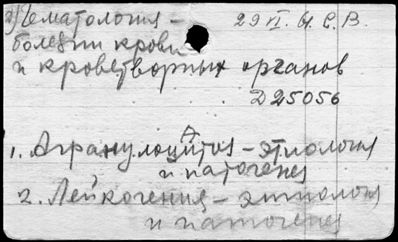 Гематология – 29 VI. Н. С. В.
болезни крови
и кроветворных органов
Д 25056
1. Агранулоцитоз – этиология
и патогенез
2. Лейкогения – этиология
и патогенез